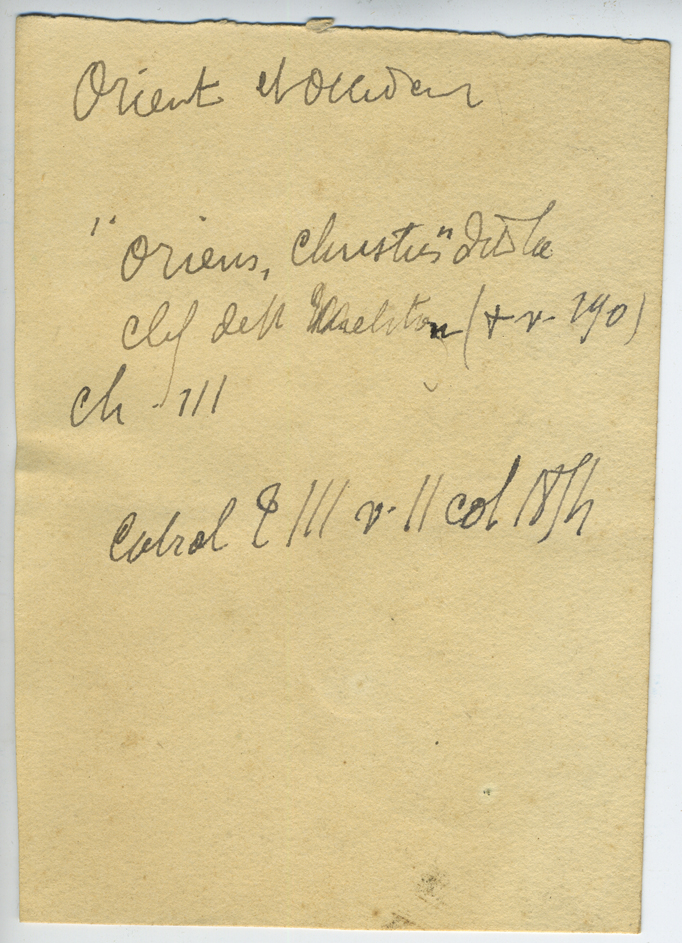 Orient et Occident
"Oriens, Christus" dit la
clef de St Meliton (+ v. 190)
ch. III
Cabrol T III v. II col